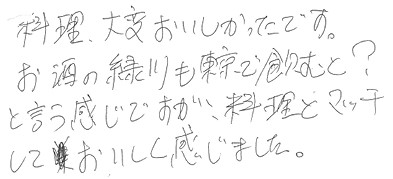 料理、大変おいしかったです。
お酒の緑川も東京で飲むと?
と言う感じですが、料理とマッチ
しておいしく感じました。